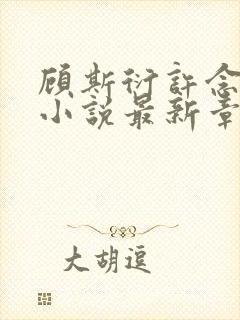 顾斯衍許念
小說最新章
大胡逗